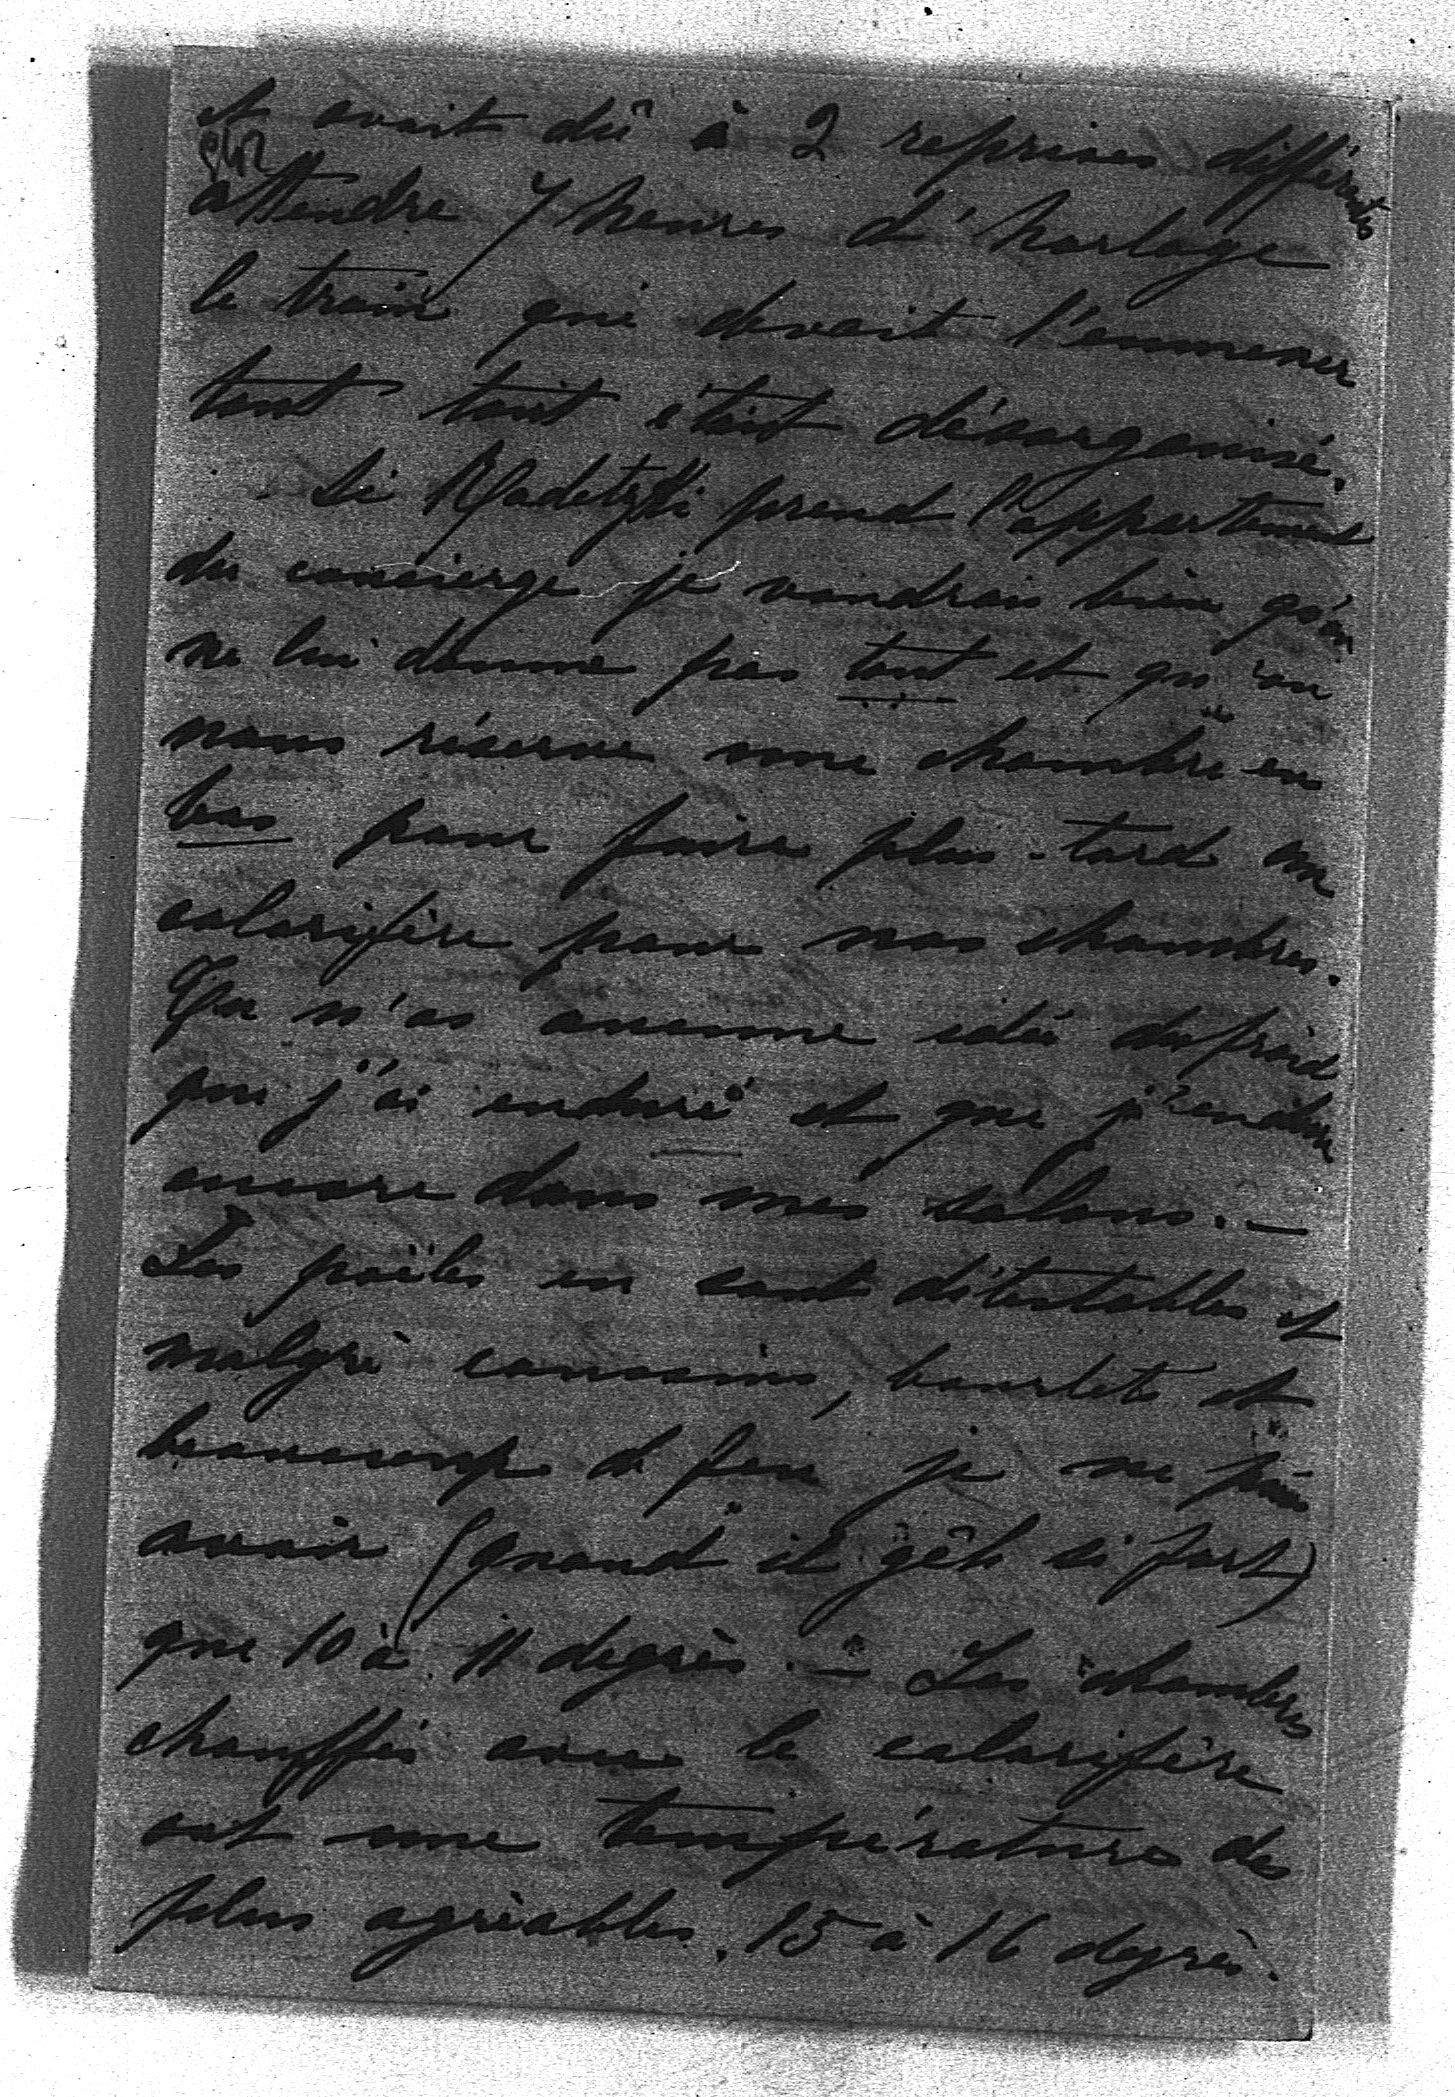 et avait dû à 2 reprises différentes
attendre 7 heures d'horloge
le train qui devait l'emmener
tant tout était désorganisé.
Si Radetzki prend l'appartement
du concierge je voudrais bien qu'on
ne lui donne pas tout et qu'on
nous réserve une chambre en
bas pour faire plus-tard un
calorifère pour nos chambres.
Tu n'as aucune idée du froid
que j'ai enduré et que j'endure
encore dans mes salons. —
Les poëles en sont détestables et
malgré coussins, bourlets et
beaucoup de feu je ne puis
avoir (quand il gêle si fort)
que 10 à 11 degrès. — Les chambres
chauffés avec le calorifère
ont une température des
plus agrèables, 15 à 16 degrès.